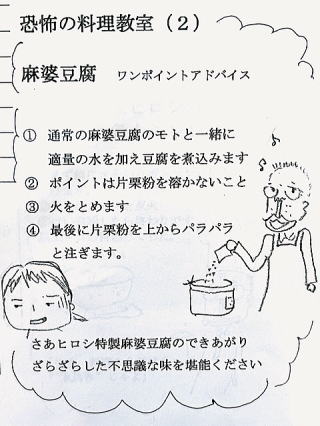 恐怖の料理教室（２）
麻婆豆腐　ワンポイントアドバイス
①　通常の麻婆豆腐のモトと一緒に
適量の水を加え豆腐を煮込みます
②　ポイントは片栗粉を溶かないこと
③　火をとめます
④　最後に片栗粉を上からパラパラ
と注ぎます。
さあヒロシ特製麻婆豆腐のできあがり
ざらざらした不思議な味を堪能ください